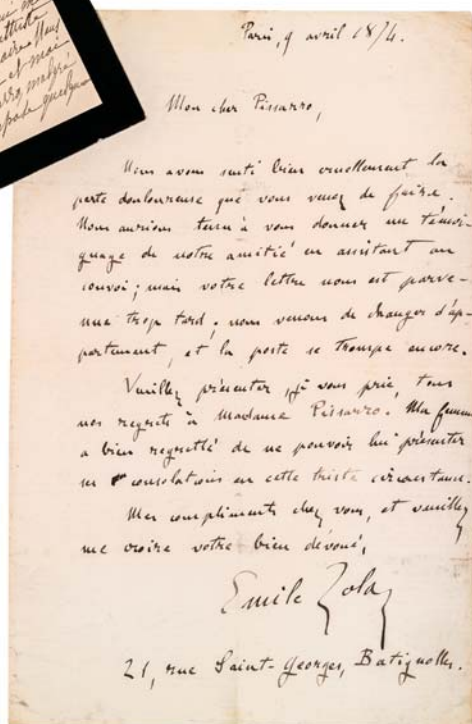 Paris, 9 avril 1874.
Mon cher Pissarro,
Nous avons senti bien cruellement la
perte douloureuse que vous venez de faire.
Nous aurions tenu à vous donner un témoi-
gnage de notre amitié en assistant au
convoi ; mais votre lettre nous est parve-
nue trop tard ; nous venons de changer d'ap-
partement, et la poste se trompe encore.
Veuillez présenter, je vous prie, tous
nos regrets à Madame Pissarro. Ma femme
a bien regretté de ne pouvoir lui présenter
ses consolations en cette triste circonstance.
Mes compliments chez vous, et veuillez
me croire votre bien dévoué,
Emile Zola
21, rue Saint-Georges, Batignolles.
et moi
malgré